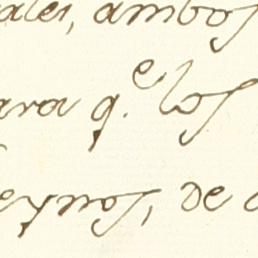 ales, ambos
ara q.e los
extnos, de